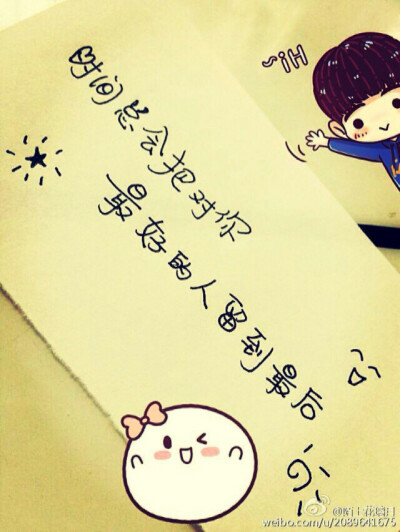 时间总会把对你
最好的人留到最后
Hi~
weibo.com/u/2089641675